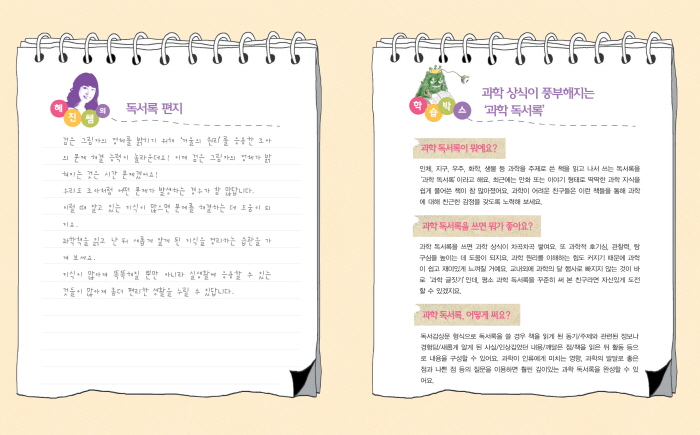 혜진쌤의
독서록 편지
검은 그림자의 정체를 밝히기 위해 '거울의 원리'를 응용한 조아
의 문제 해결 능력이 놀라운데요! 이제 검은 그림자의 정체가 밝
혀지는 것은 시간 문제겠어요!
우리도 조아처럼 어떤 문제가 발생하는 경우가 참 많답니다.
이럴 때 알고 있는 지식이 많으면 문제를 해결하는 데 도움이 되
지요.
과학책을 읽고 난 뒤 새롭게 알게 된 지식을 정리하는 습관을 가
져 보세요.
지식이 많아져 똑똑해질 뿐만 아니라 실생활에 응용할 수 있는
것들이 많아져 좀더 편리한 생활을 누릴 수 있답니다.
학습박스
과학 상식이 풍부해지는
'과학 독서록'
과학 독서록이 뭐예요?
인체, 지구, 우주, 화학, 생물 등 과학을 주제로 쓴 책을 읽고 나서 쓰는 독서록을
'과학 독서록'이라고 해요. 최근에는 만화 또는 이야기 형태로 딱딱한 과학 지식을
쉽게 풀어쓴 책이 참 많아졌어요. 과학이 어려운 친구들은 이런 책들을 통해 과학
에 대해 친근한 감정을 갖도록 노력해 보세요.
과학 독서록을 쓰면 뭐가 좋아요?
과학 독서록을 쓰면 과학 상식이 차곡차곡 쌓여요. 또 과학적 호기심, 관찰력, 탐
구심을 높이는 데 도움이 되지요. 과학 원리를 이해하는 힘도 커지기 때문에 과학
이 쉽고 재미있게 느껴질 거예요. 교내외에 과학의 달 행사로 빠지지 않는 것이 바
로 '과학 글짓기'인데, 평소 과학 독서록을 꾸준히 써 본 친구라면 자신있게 도전
할 수 있겠지요.
과학 독서록, 어떻게 써요?
독서감상문 형식으로 독서록을 쓸 경우 책을 읽게 된 동기/주제와 관련된 정보나
경험담/새롭게 알게 된 사실/인상깊었던 내용/깨달은 점/책을 읽은 뒤 활동 등으
로 내용을 구성할 수 있어요. 과학이 인류에게 미치는 영향, 과학의 발달로 좋은
점과 나쁜 점 등의 질문을 이용하면 훨씬 깊이있는 과학 독서록을 완성할 수 있
어요.